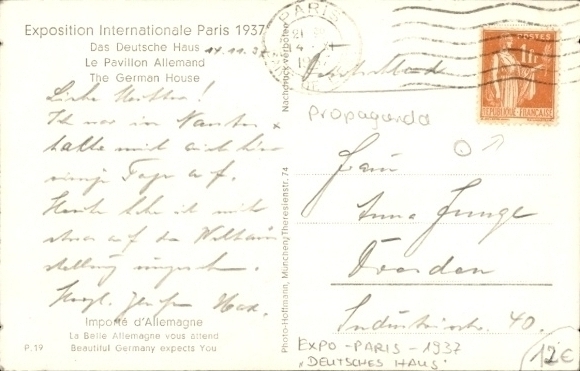 Exposition Internationale Paris 1937
Das Deutsche Haus
Le Pavillon Allemand
The German House
Liebe Mutter!
Ich war in Nantes
halte mich auch hier
einige Tage auf.
Heute habe ich mich
etwas auf der Weltaus
stellung umgesehen.
Herzl. Max.
Importé d'Allemagne
La Belle Allemagne vous attend
Beautiful Germany expects You
P. 19
Nachdruck verboten
Photo-Hoffmann, München, Theresienstr. 74
PARIS
POSTES
1F
REPUBLIQUE FRANÇAISE
Deutschland
propaganda
Frau
Anna Junge
Dresden
Industriestr. 40.
EXPO - PARIS - 1937
"DEUTSCHES HAUS"
12€